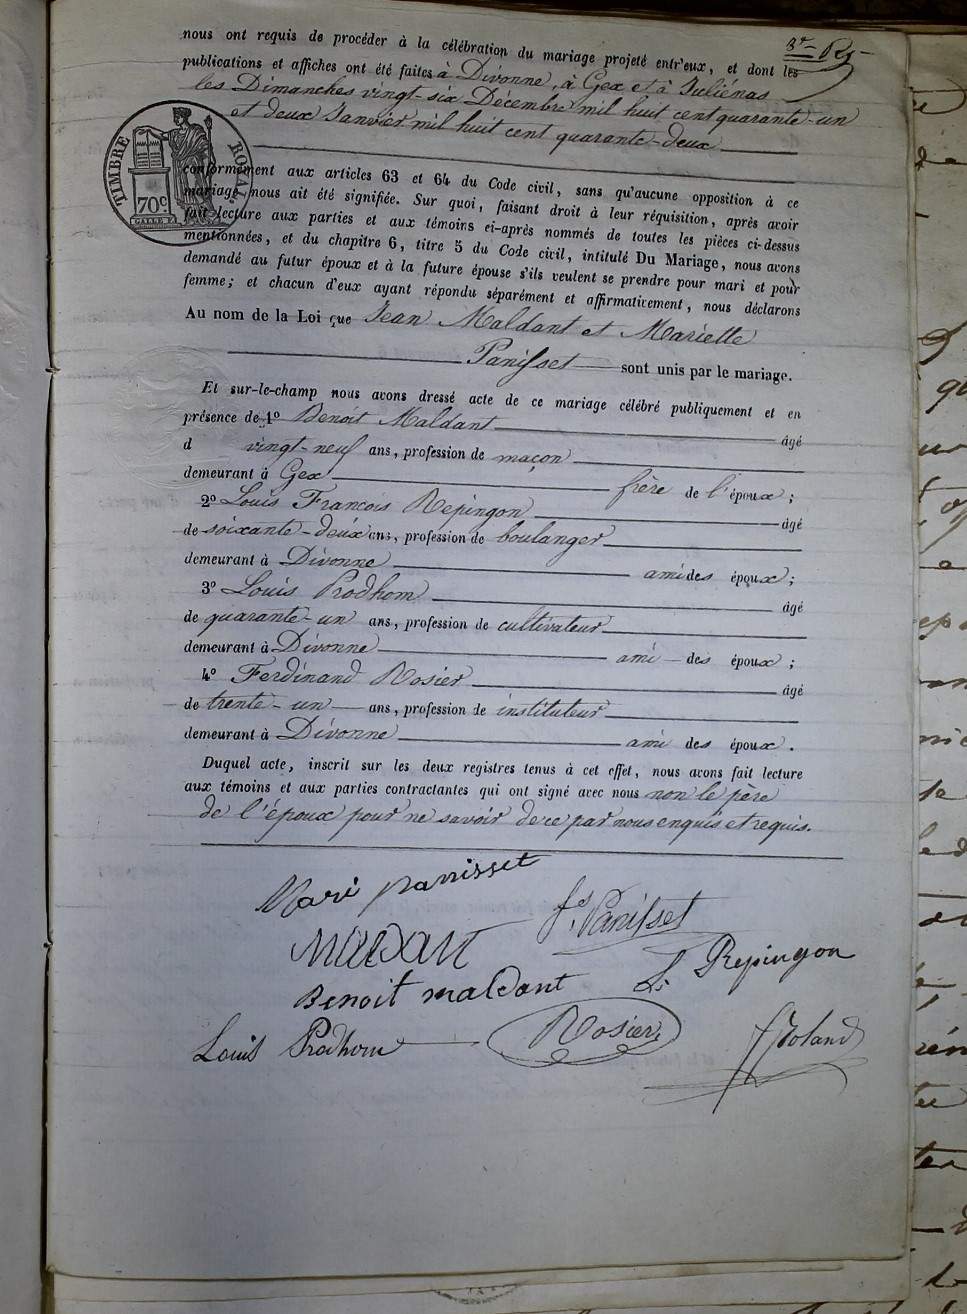 3e Rg
nous ont requis de procéder à la célébration du mariage projeté entr'eux, et dont les
publications et affiches ont été faites à Divonne, à Gex et à Juliénas
les Dimanches vingt-six Décembre mil huit cent quarante-un
et deux Janvier mil huit cent quarante-deux
TIMBRE ROYAL
70c
GALLE F.
conformément aux articles 63 et 64 du Code civil, sans qu'aucune opposition à ce
mariage nous ait été signifiée. Sur quoi, faisant droit à leur réquisition, après avoir
fait lecture aux parties et aux témoins ci-après nommés de toutes les pièces ci-dessus
mentionnées, et du chapitre 6, titre 5 du Code civil, intitulé Du Mariage, nous avons
demandé au futur époux et à la future épouse s'ils veulent se prendre pour mari et pour
femme; et chacun d'eux ayant répondu séparément et affirmativement, nous déclarons
Au nom de la Loi que Jean Maldant et Mariette
Panisset sont unis par le mariage.
Et sur-le-champ nous avons dressé acte de ce mariage célébré publiquement et en
présence de 1º Benoit Maldant âgé
d vingt-neuf ans, profession de maçon
demeurant à Gex frère de l'époux;
2º Louis François Repingon âgé
de soixante-deux ans, profession de boulanger
demeurant à Divonne ami des époux;
3º Louis Prodhom âgé
de quarante-un ans, profession de cultivateur
demeurant à Divonne ami des époux;
4º Ferdinand Rosier âgé
de trente-un ans, profession de instituteur
demeurant à Divonne ami des époux.
Duquel acte, inscrit sur les deux registres tenus à cet effet, nous avons fait lecture
aux témoins et aux parties contractantes qui ont signé avec nous non le père
de l'époux pour ne savoir de ce par nous enquis et requis.
Mari panisset
fs. Panisset
MALDANT
L. Repingon
Benoit maldant
Louis Prodhom
Rosier